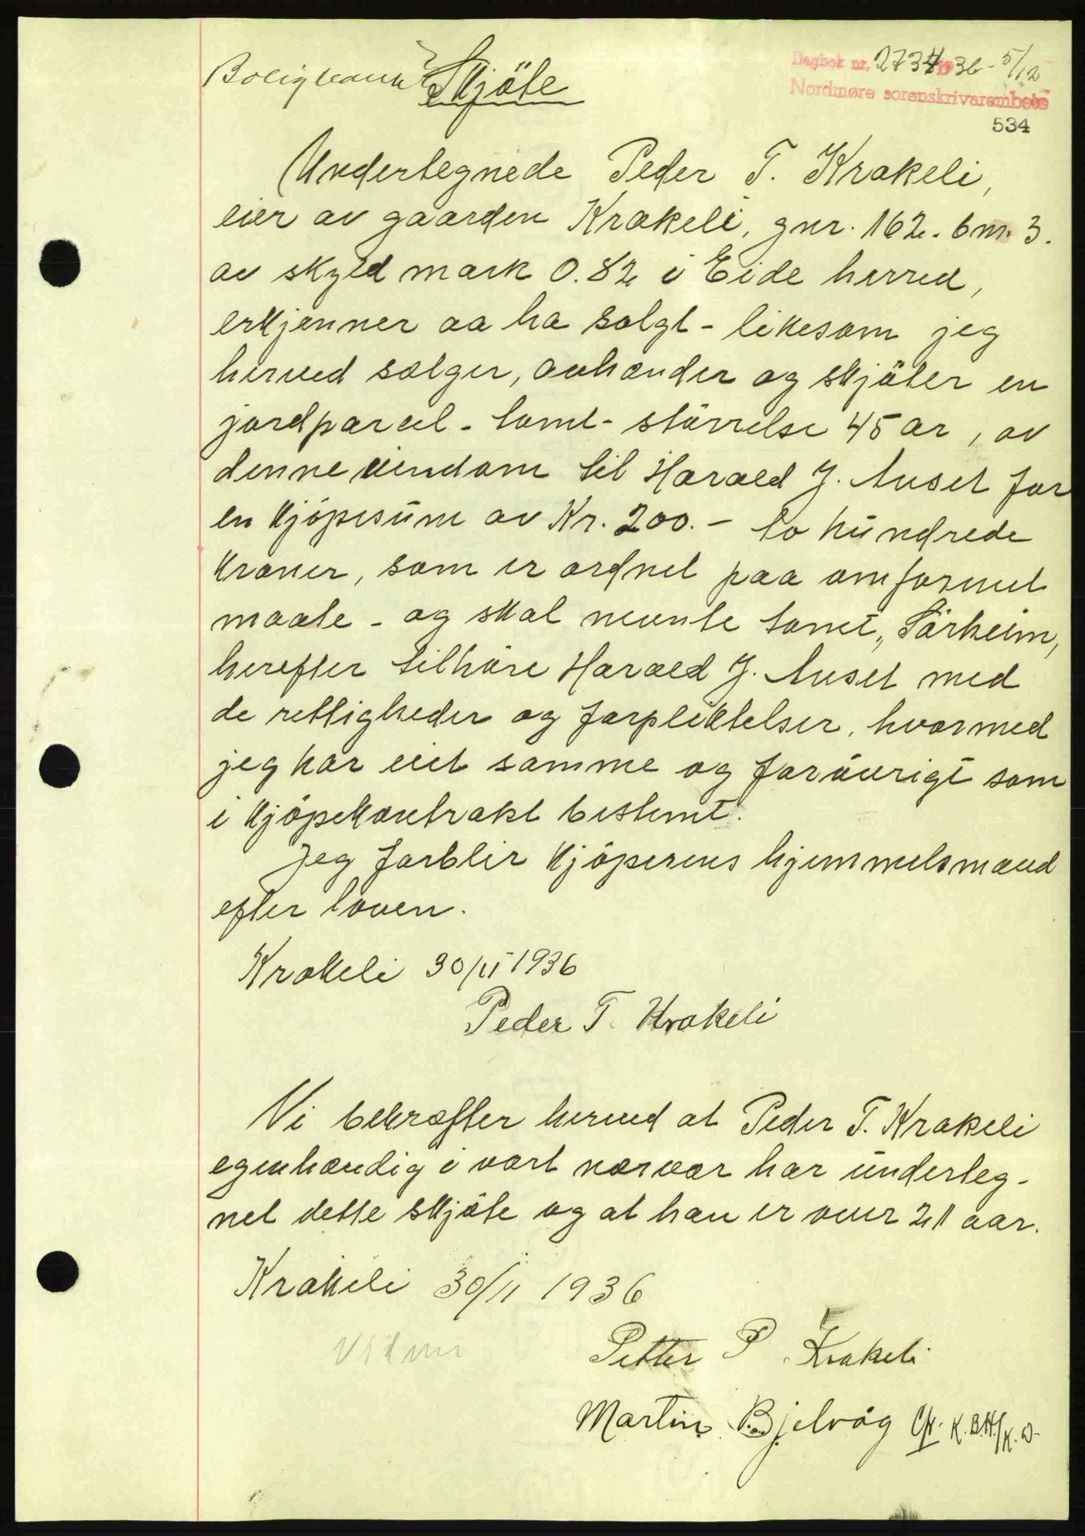 Dagbok nr. 2734 1936 - 5/12
Nordmøre sorenskrivarembete
534
Skjöte
Undertegnede Peder T. Krakeli,
eier av gaarden Krakeli, gnr. 162. bnr. 3.
av skyld mark 0.82 i Eide herred,
erkjenner aa ha solgt - likesom jeg
herved sælger, avhænder og skjöter en
jordparcel - tomt - störrelse 45 ar, av
denne eiendom til Harald J. Auset for
en kjöpesum av Kr. 200.- to hundrede
kroner, som er ordnet paa omforenet
maate - og skal nevnte tomt, "Sörheim,
herefter tilhöre Harald J. Auset med
de rettigheder og forpliktelser, hvormed
jeg har eiet samme og foröurigt som
i kjöpekontrakt bestemt.
Jeg forblir kjöperens hjemmelsmand
efter loven.
Krakeli 30/11 1936
Peder T. Krakeli
Vi bekræfter herved at Peder T. Krakeli
egenhændig i vort nærvær har underteg-
net dette skjöte og at han er over 21 aar.
Krakeli 30/11 1936
Petter P. Krakeli
Martin Bjelvåg